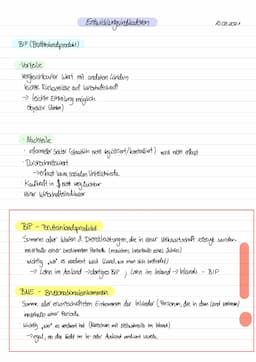 Entwicklungsindikatoren
BIP (Bruttoinlandsprodukt)
Vorteile
vergleichbarer Wert mit anderen Ländern
leichte Rückschlüsse auf Wirtschaftskraft
→ leichte Ermittlung möglich
objektiv
Nachteile
informeller Sektor wird nicht erfasst
Durchschnittswert
→ erfasst keine sozialen Unterschiede
Kaufkraft in $ nicht vergleichbar
reiner Wirtschaftsindikator
BIP - Bruttoinlandsprodukt
Summe aller Waren & Dienstleistungen, die in einer Volkswirtschaft erzeugt wurden
innerhalb einer bestimmten Periode (meistens innerhalb eines Jahres)
wichtig „wo" es verdient wird
→ Lohn im Ausland → dortiges BIP, Lohn im Inland → Inlands-BIP
BNE - Bruttonationaleinkommen
Summe aller erwirtschafteten Einkommen der Inländer (Personen, die in dem Land wohnen)
innerhalb einer Periode.
wichtig „wer" es verdient hat (Personen mit Wohnsitz im Inland)
→ egal, ob das Geld im In- oder Ausland verdient wurde.